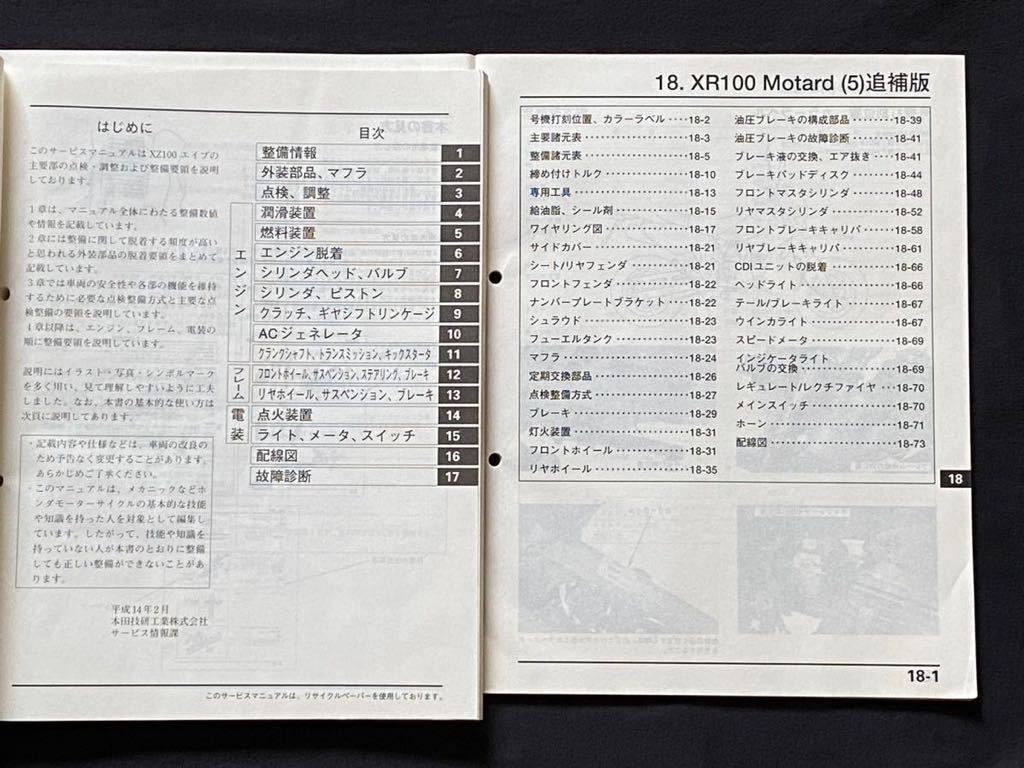 はじめに
このサービスマニュアルはXZ100 エイプの
主要部の点検・調整および整備要領を説明
しております。
1章は、マニュアル全体にわたる整備数値
や情報を記載しています。
2章には整備に関して脱着する頻度が高い
と思われる外装部品の脱着要領をまとめて
記載しています。
3章では車両の安全性や各部の機能を維持
するために必要な点検整備方式と主要な点
検整備の要領を説明しています。
4章以降は、エンジン、フレーム、電装の
順に整備要領を説明しています。
説明にはイラスト・写真・シンボルマーク
を多く用い、見て理解しやすいように工夫
しました。なお、本書の基本的な使い方は
次頁に説明してあります。
・記載内容や仕様などは、車両の改良のた
め予告なく変更することがあります。
あらかじめご了承ください。
・このマニュアルは、メカニックなどホ
ンダモーターサイクルの基本的な技能
や知識を持った人を対象として編集し
ています。したがって、技能や知識を
持っていない人が本書のとおりに整備
しても正しい整備ができないことがあ
ります。
平成14年2月
本田技研工業株式会社
サービス情報課
目次
整備情報 1
外装部品、マフラ 2
点検、調整 3
エンジン
潤滑装置 4
燃料装置 5
エンジン脱着 6
シリンダヘッド、バルブ 7
シリンダ、ピストン 8
クラッチ、ギヤシフトリンケージ 9
ACジェネレータ 10
クランクシャフト、トランスミッション、キックスタータ 11
フレーム
フロントホイール、サスペンション、ステアリング、ブレーキ 12
リヤホイール、サスペンション、ブレーキ 13
電装
点火装置 14
ライト、メータ、スイッチ 15
配線図 16
故障診断 17
このサービスマニュアルは、リサイクルペーパーを使用しております。
18. XR100 Motard (5)追補版
号機打刻位置、カラーラベル‥‥18-2
主要諸元表‥‥‥‥18-3
整備諸元表‥‥‥‥18-5
締め付けトルク‥‥‥‥18-10
専用工具‥‥‥‥18-13
給油脂、シール剤‥‥‥‥18-15
ワイヤリング図‥‥‥‥18-17
サイドカバー‥‥‥‥18-21
シート/リヤフェンダ‥‥‥‥18-21
フロントフェンダ‥‥‥‥18-22
ナンバープレートブラケット‥‥‥‥18-22
シュラウド‥‥‥‥18-23
フューエルタンク‥‥‥‥18-23
マフラ‥‥‥‥18-24
定期交換部品‥‥‥‥18-26
点検整備方式‥‥‥‥18-27
ブレーキ‥‥‥‥18-29
灯火装置‥‥‥‥18-31
フロントホイール‥‥‥‥18-31
リヤホイール‥‥‥‥18-35
油圧ブレーキの構成部品‥‥‥‥18-39
油圧ブレーキの故障診断‥‥‥‥18-41
ブレーキ液の交換、エア抜き‥‥18-41
ブレーキパッドディスク‥‥‥‥18-44
フロントマスタシリンダ‥‥‥‥18-48
リヤマスタシリンダ‥‥‥‥18-52
フロントブレーキキャリパ‥‥‥‥18-58
リヤブレーキキャリパ‥‥‥‥18-61
CDIユニットの脱着‥‥‥‥18-66
ヘッドライト‥‥‥‥18-66
テール/ブレーキライト‥‥‥‥18-67
ウインカライト‥‥‥‥18-67
スピードメータ‥‥‥‥18-69
インジケータライト
バルブの交換‥‥‥‥18-69
レギュレート/レクチファイヤ‥‥18-70
メインスイッチ‥‥‥‥18-70
ホーン‥‥‥‥18-71
配線図‥‥‥‥18-73
18
18-1